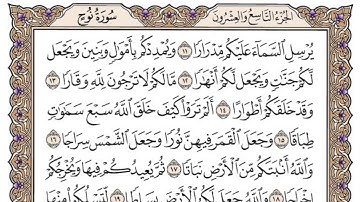 الجزء التاسع والعشرون سورة نوح
يُرْسِلِ السَّمَاءَ عَلَيْكُم مِّدْرَارًا ١١ وَيُمْدِدْكُم بِأَمْوَالٍ وَبَنِينَ وَيَجْعَل
لَّكُمْ جَنَّاتٍ وَيَجْعَل لَّكُمْ أَنْهَارًا ١٢ مَّا لَكُمْ لَا تَرْجُونَ لِلَّهِ وَقَارًا ١٣
وَقَدْ خَلَقَكُمْ أَطْوَارًا ١٤ أَلَمْ تَرَوْا كَيْفَ خَلَقَ اللَّهُ سَبْعَ سَمَاوَاتٍ
طِبَاقًا ١٥ وَجَعَلَ الْقَمَرَ فِيهِنَّ نُورًا وَجَعَلَ الشَّمْسَ سِرَاجًا ١٦
وَاللَّهُ أَنبَتَكُم مِّنَ الْأَرْضِ نَبَاتًا ١٧ ثُمَّ يُعِيدُكُمْ فِيهَا وَيُخْرِجُكُمْ
إِخْرَاجًا ١٨ وَاللَّهُ جَعَلَ لَكُمُ الْأَرْضَ بِسَاطًا ١٩ لِّتَسْلُكُوا مِنْهَا